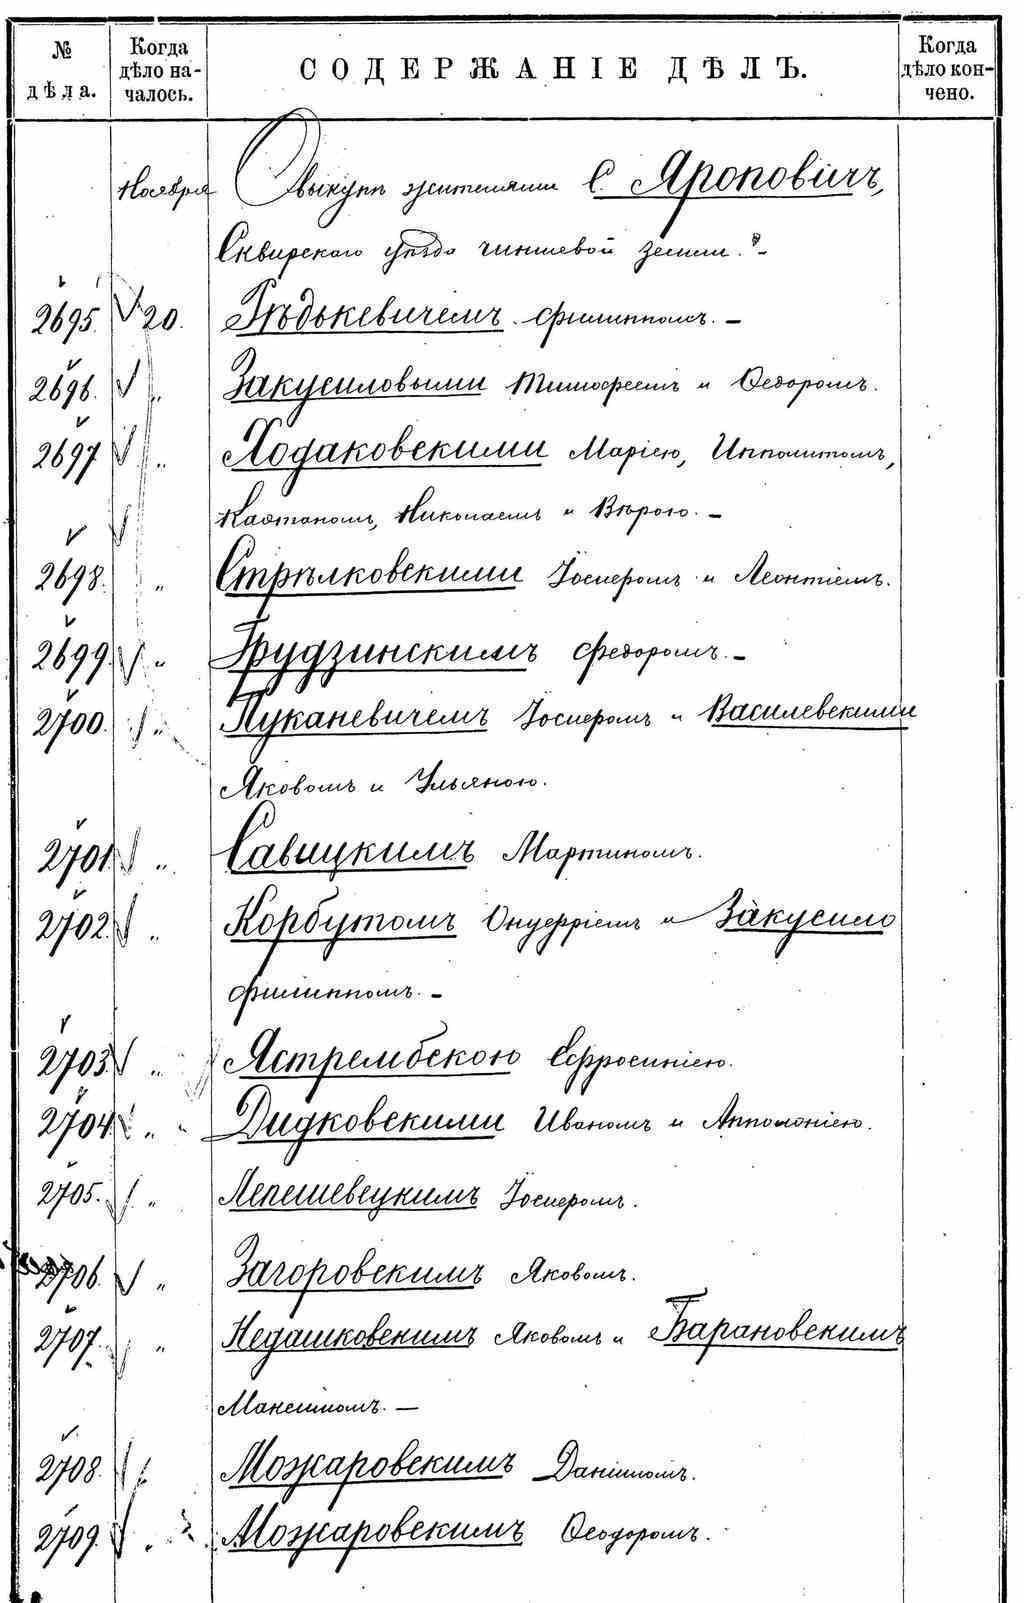 № дѣла. Когда дѣло началось. СОДЕРЖАНІЕ ДѢЛЪ. Когда дѣло кончено.
Ноября О выкупѣ жителями С. Яроповичъ,
Сквирскаго уѣзда чиншевой земли. -
2695. 20. Гнѣдькевичемъ Филиппомъ. -
2696. " Закусиловыми Тимофеемъ и Ѳедоромъ.
2697 " Ходаковскими Маріею, Ипполитомъ,
Каэтаномъ, Николаемъ и Вѣрою. -
2698. " Стрѣлковскими Іосифомъ и Леонтіемъ.
2699. " Грудзинскимъ Федоромъ. -
2700. " Луканевичемъ Іосифомъ и Василевскими
Яковомъ и Ульяною.
2701 " Савицкимъ Мартиномъ.
2702. " Корбутомъ Онуфріемъ и Закусило
Филиппомъ. -
2703. " Ястрембскою Ефросиніею.
2704 " Дидковскими Иваномъ и Апполоніею.
2705. " Лепешевецкимъ Іосифомъ.
2706. " Загоровскимъ Яковомъ.
2707. " Недашковскимъ Яковомъ и Барановскимъ
Максимомъ. —
2708. Можаровскимъ Даніиломъ.
2709. " Можаровскимъ Ѳеодоромъ.